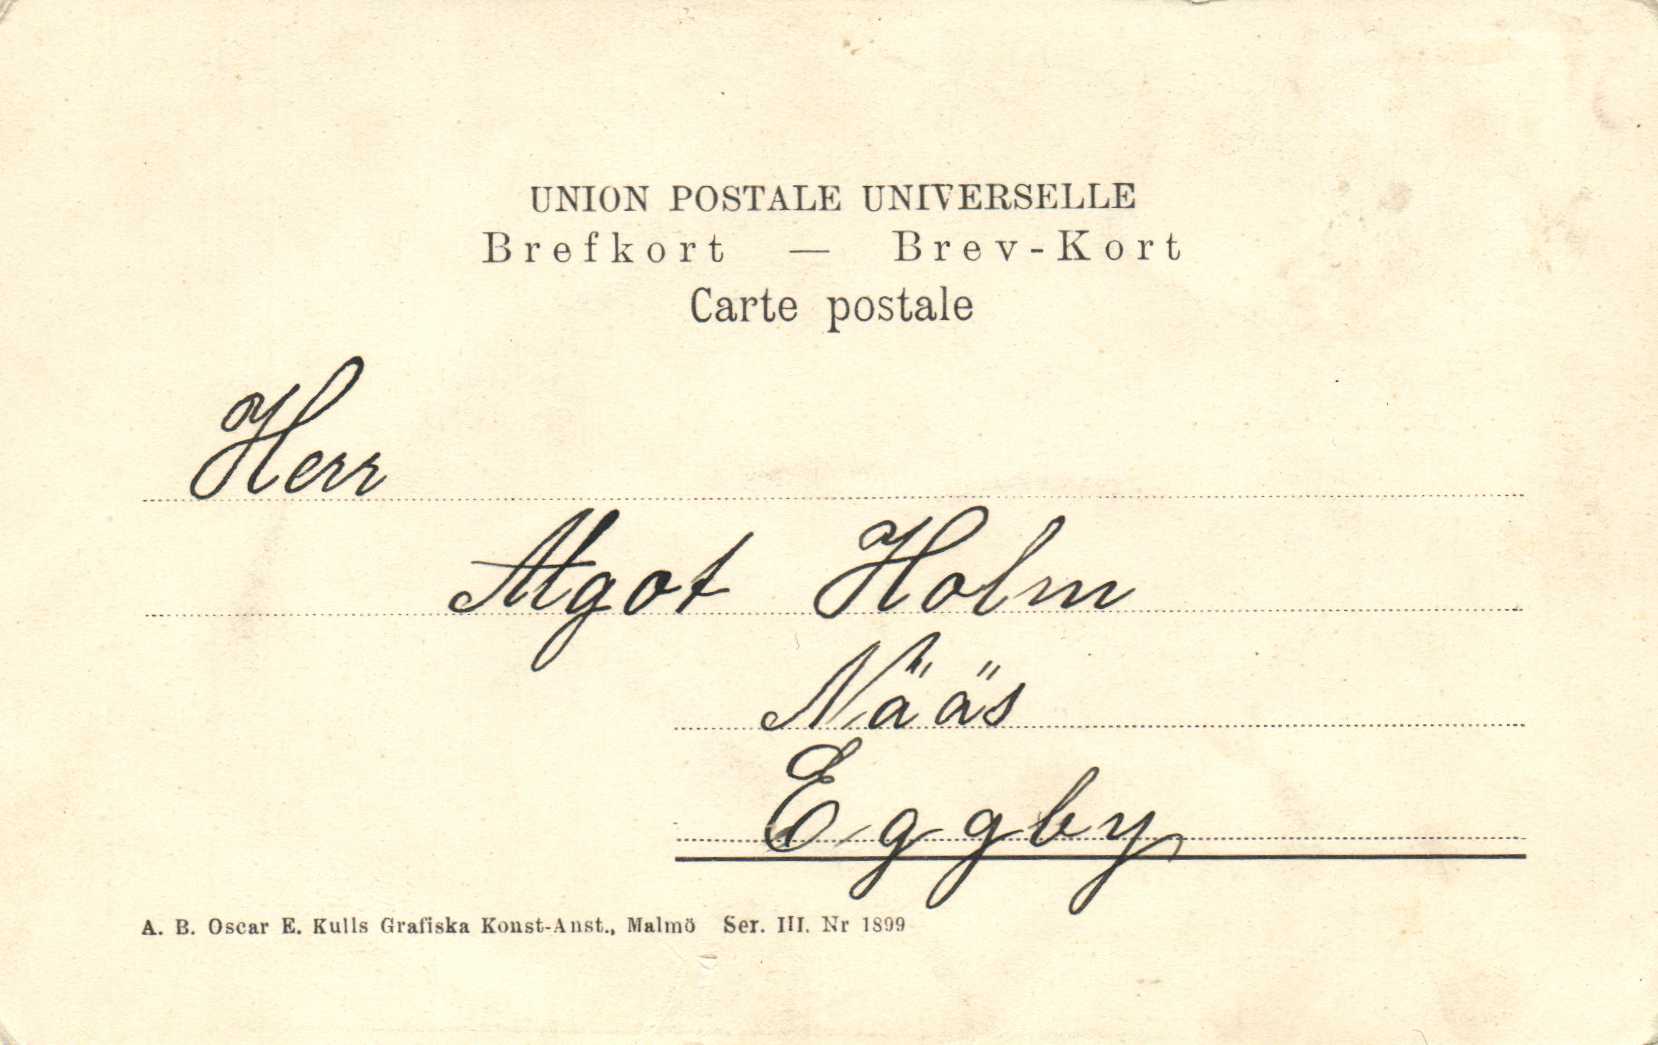 UNION POSTALE UNIVERSELLE
Brefkort — Brev-Kort
Carte postale
Herr
Algot Holm
Nääs
Eggby
A. B. Oscar E. Kulls Grafiska Konst-Anst., Malmö Ser. III. Nr 1899